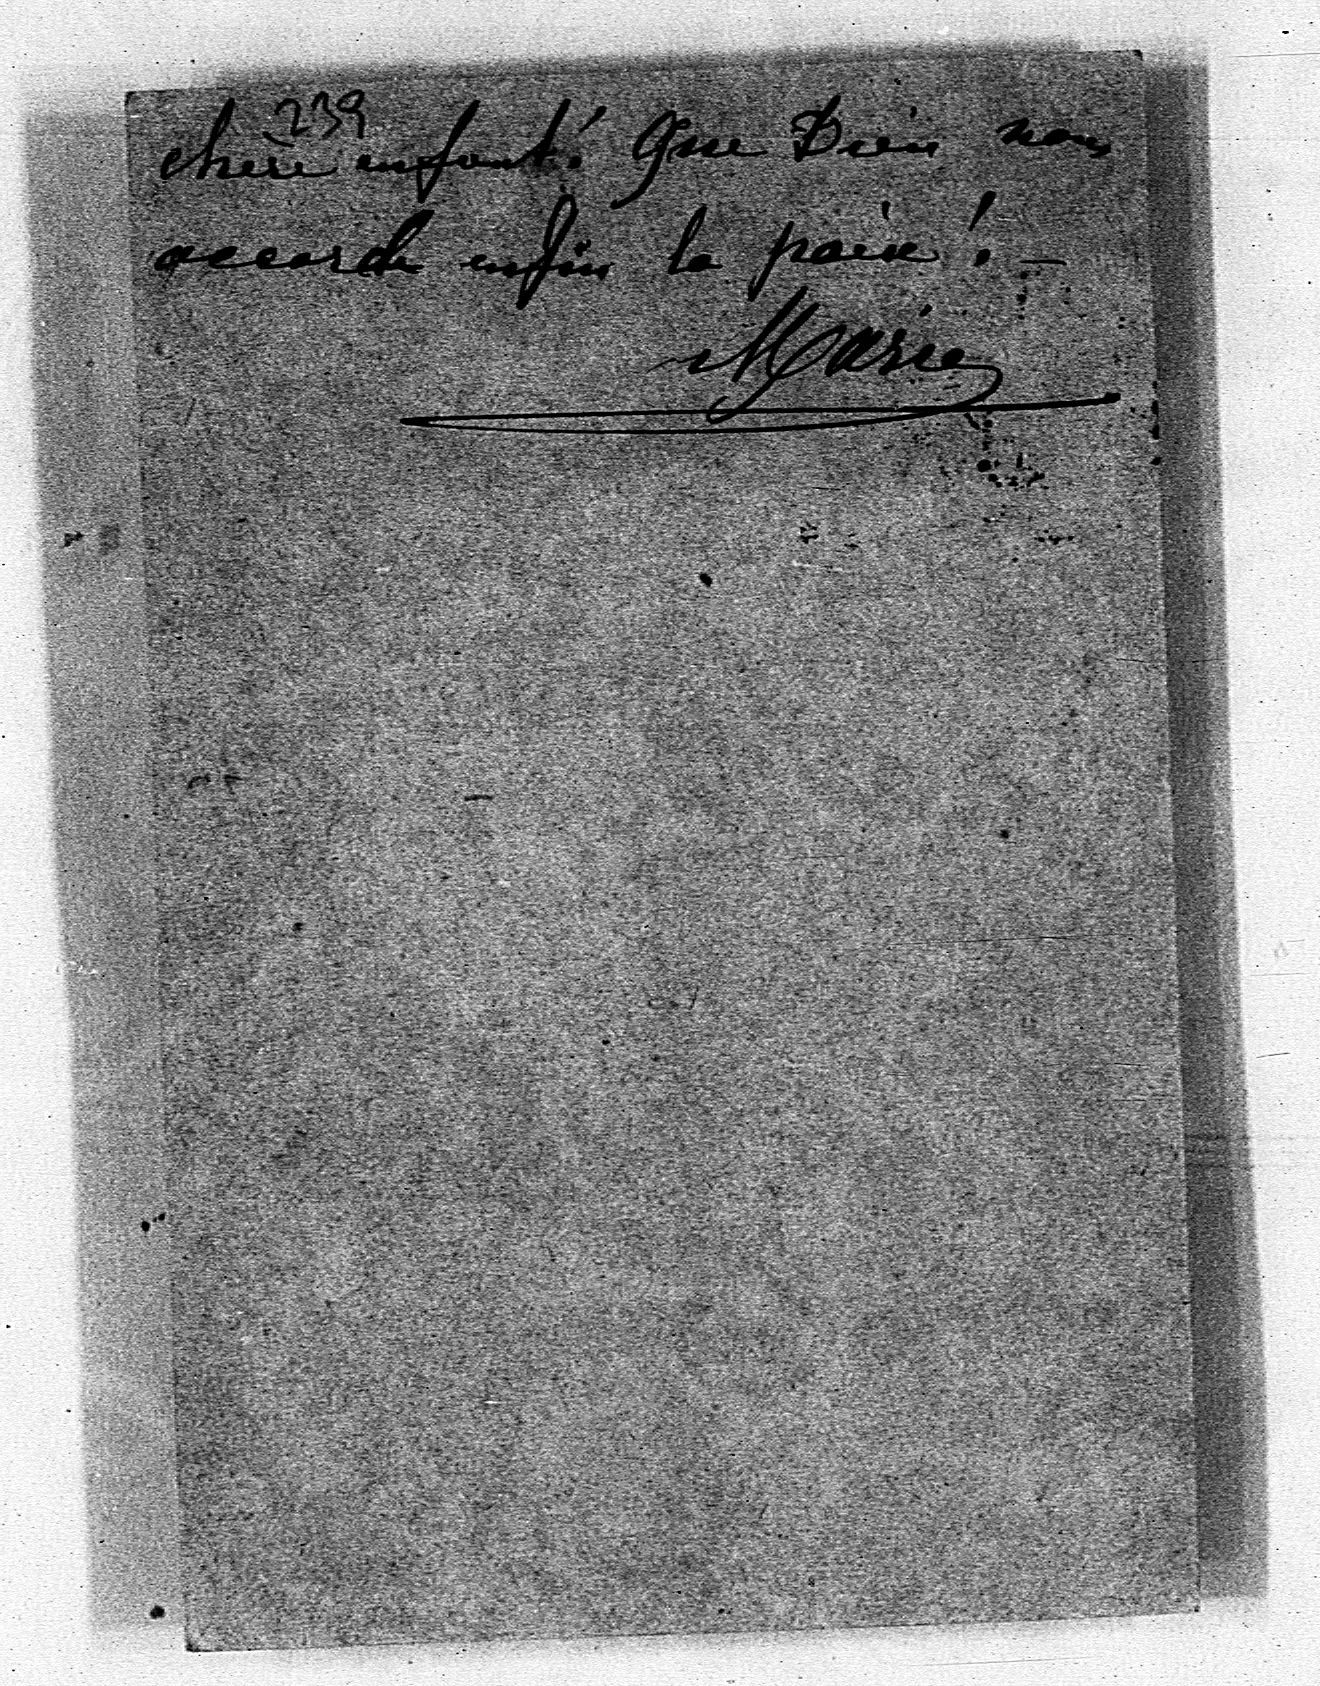 239
chere enfant! Que Dieu nous
accorde enfin la paix! —
Marie